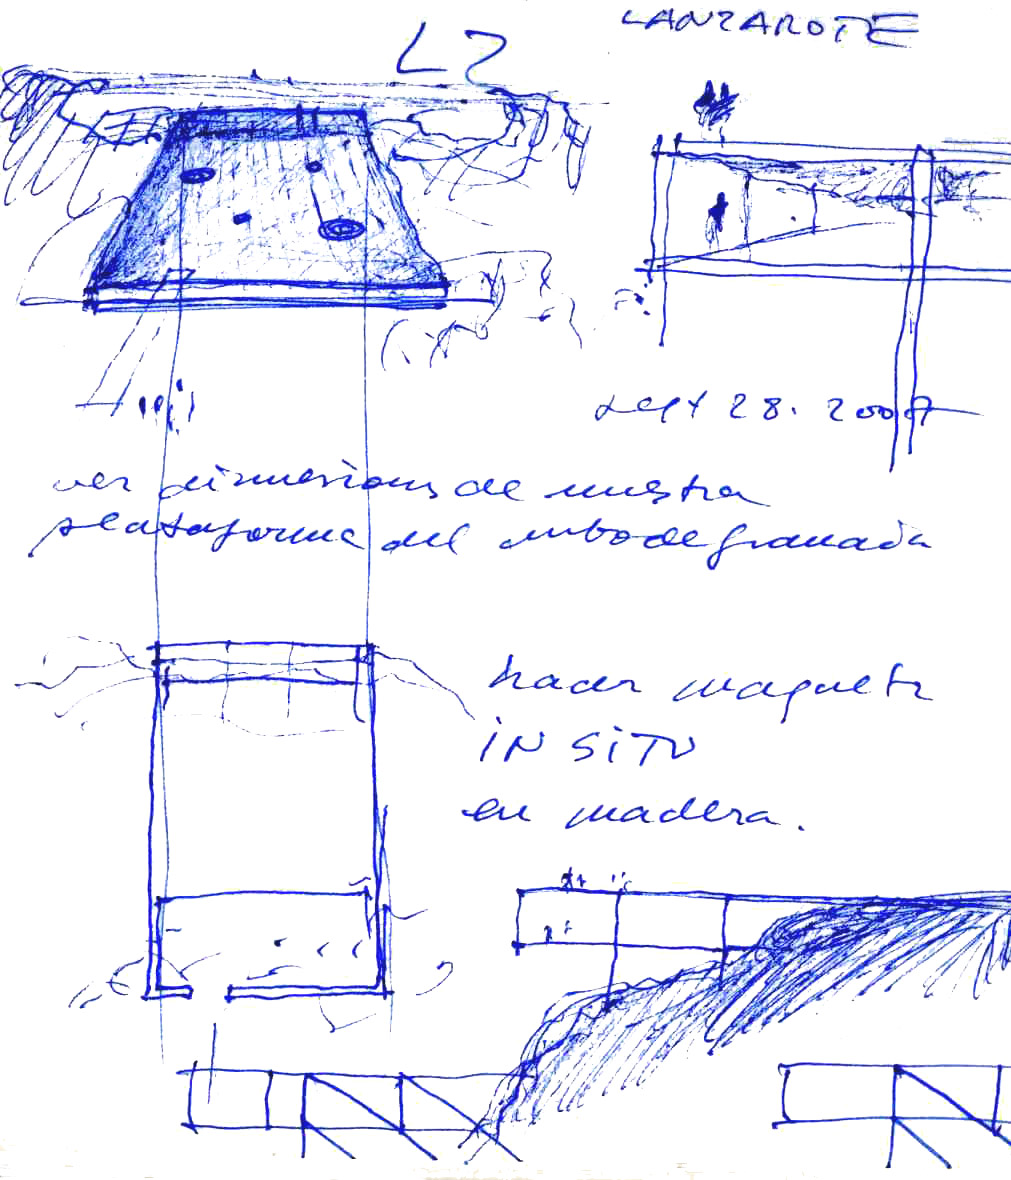 LANZAROTE
LZ
Sept 28. 2007
ver dimensions de nuestra
plataforma del cubo de granada
hacer maqueta
IN SITU
en madera.